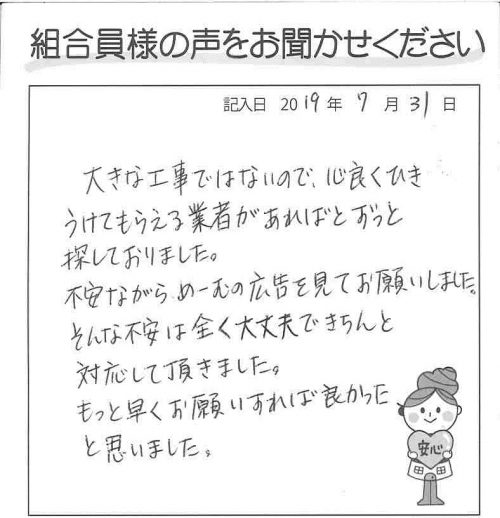 組合員様の声をお聞かせください
記入日 2019年 7月31日
大きな工事ではないので、心良くひき
うけてもらえる業者があればとずっと
探しておりました。
不安ながら、めーむの広告を見てお願いしました。
そんな不安は全く大丈夫できちんと
対応して頂きました。
もっと早くお願いすれば良かった
と思いました。
安心